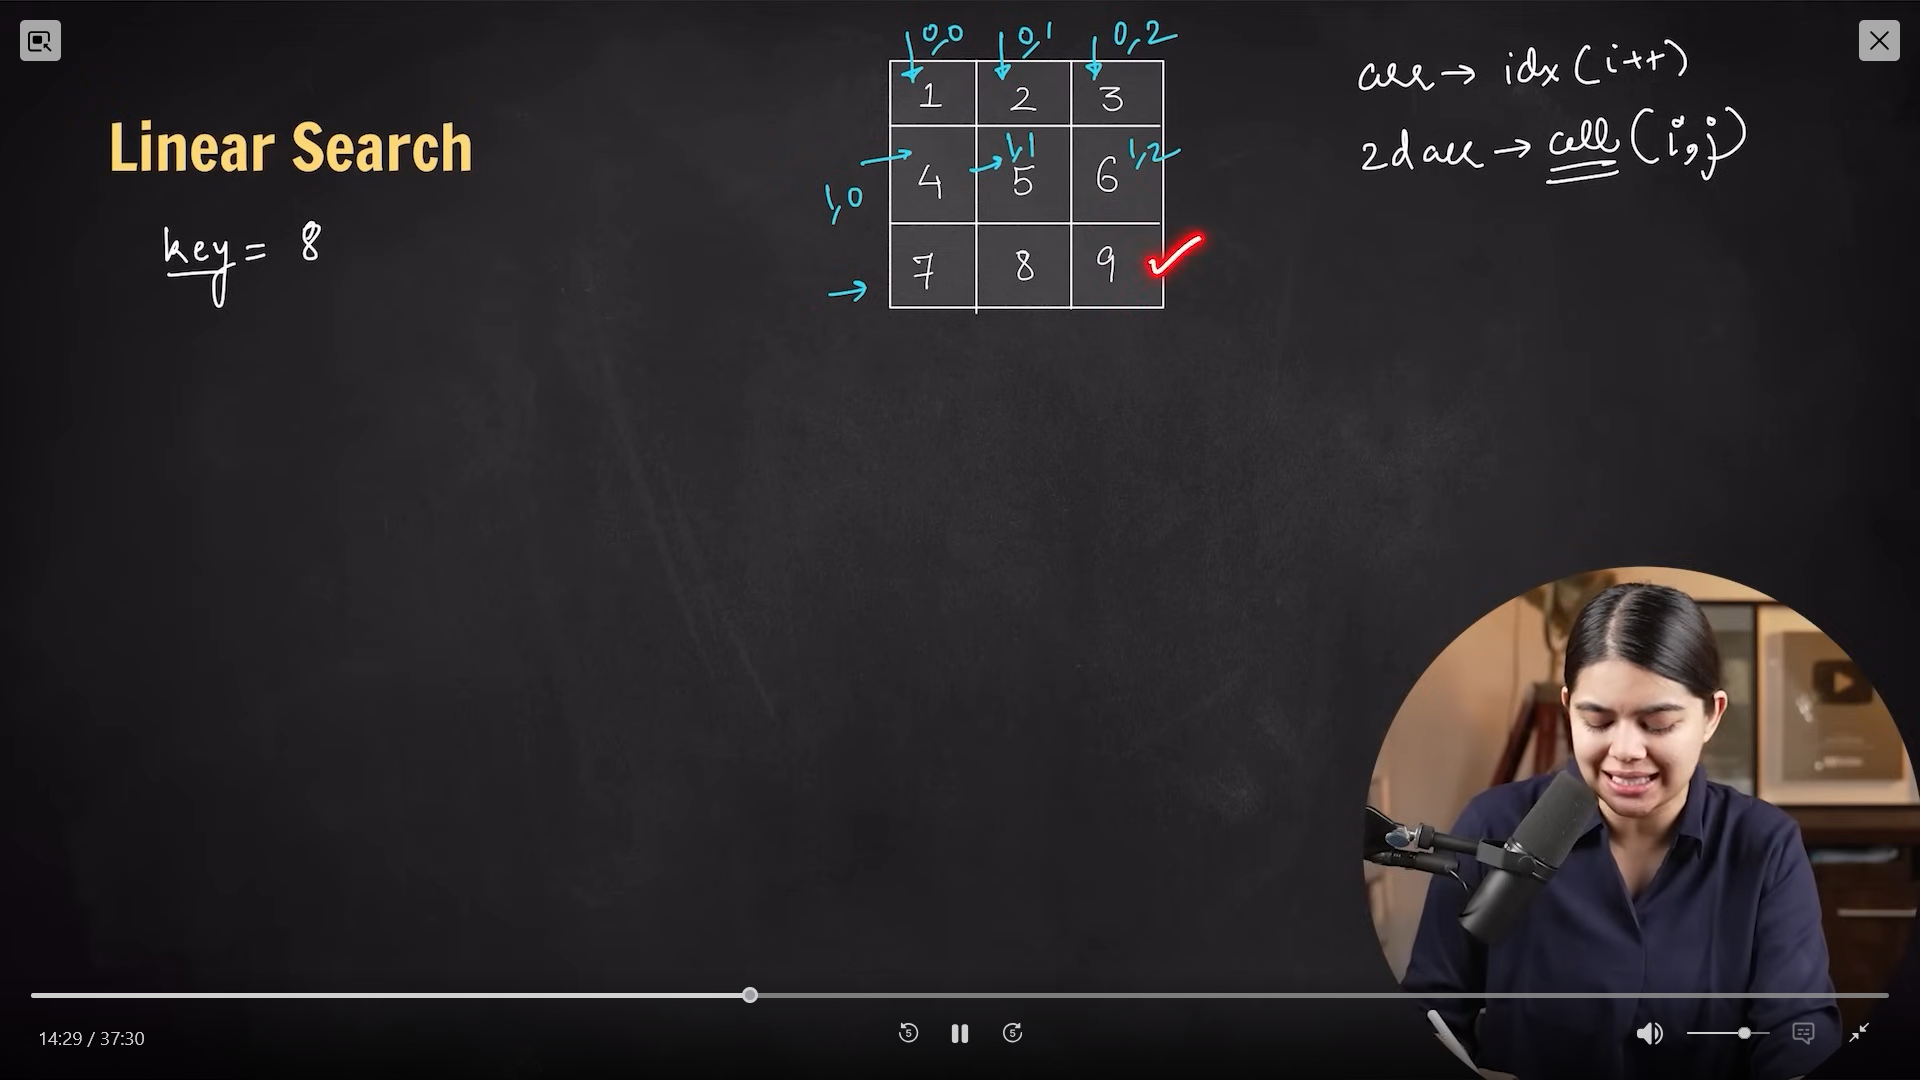 Linear Search
key = 8
0,0 0,1 0,2
1 2 3
1,1 1,2
4 5 6
1,0
7 8 9
arr → idx (i++)
2d arr → cell (i,j)
14:29 / 37:30
5 5